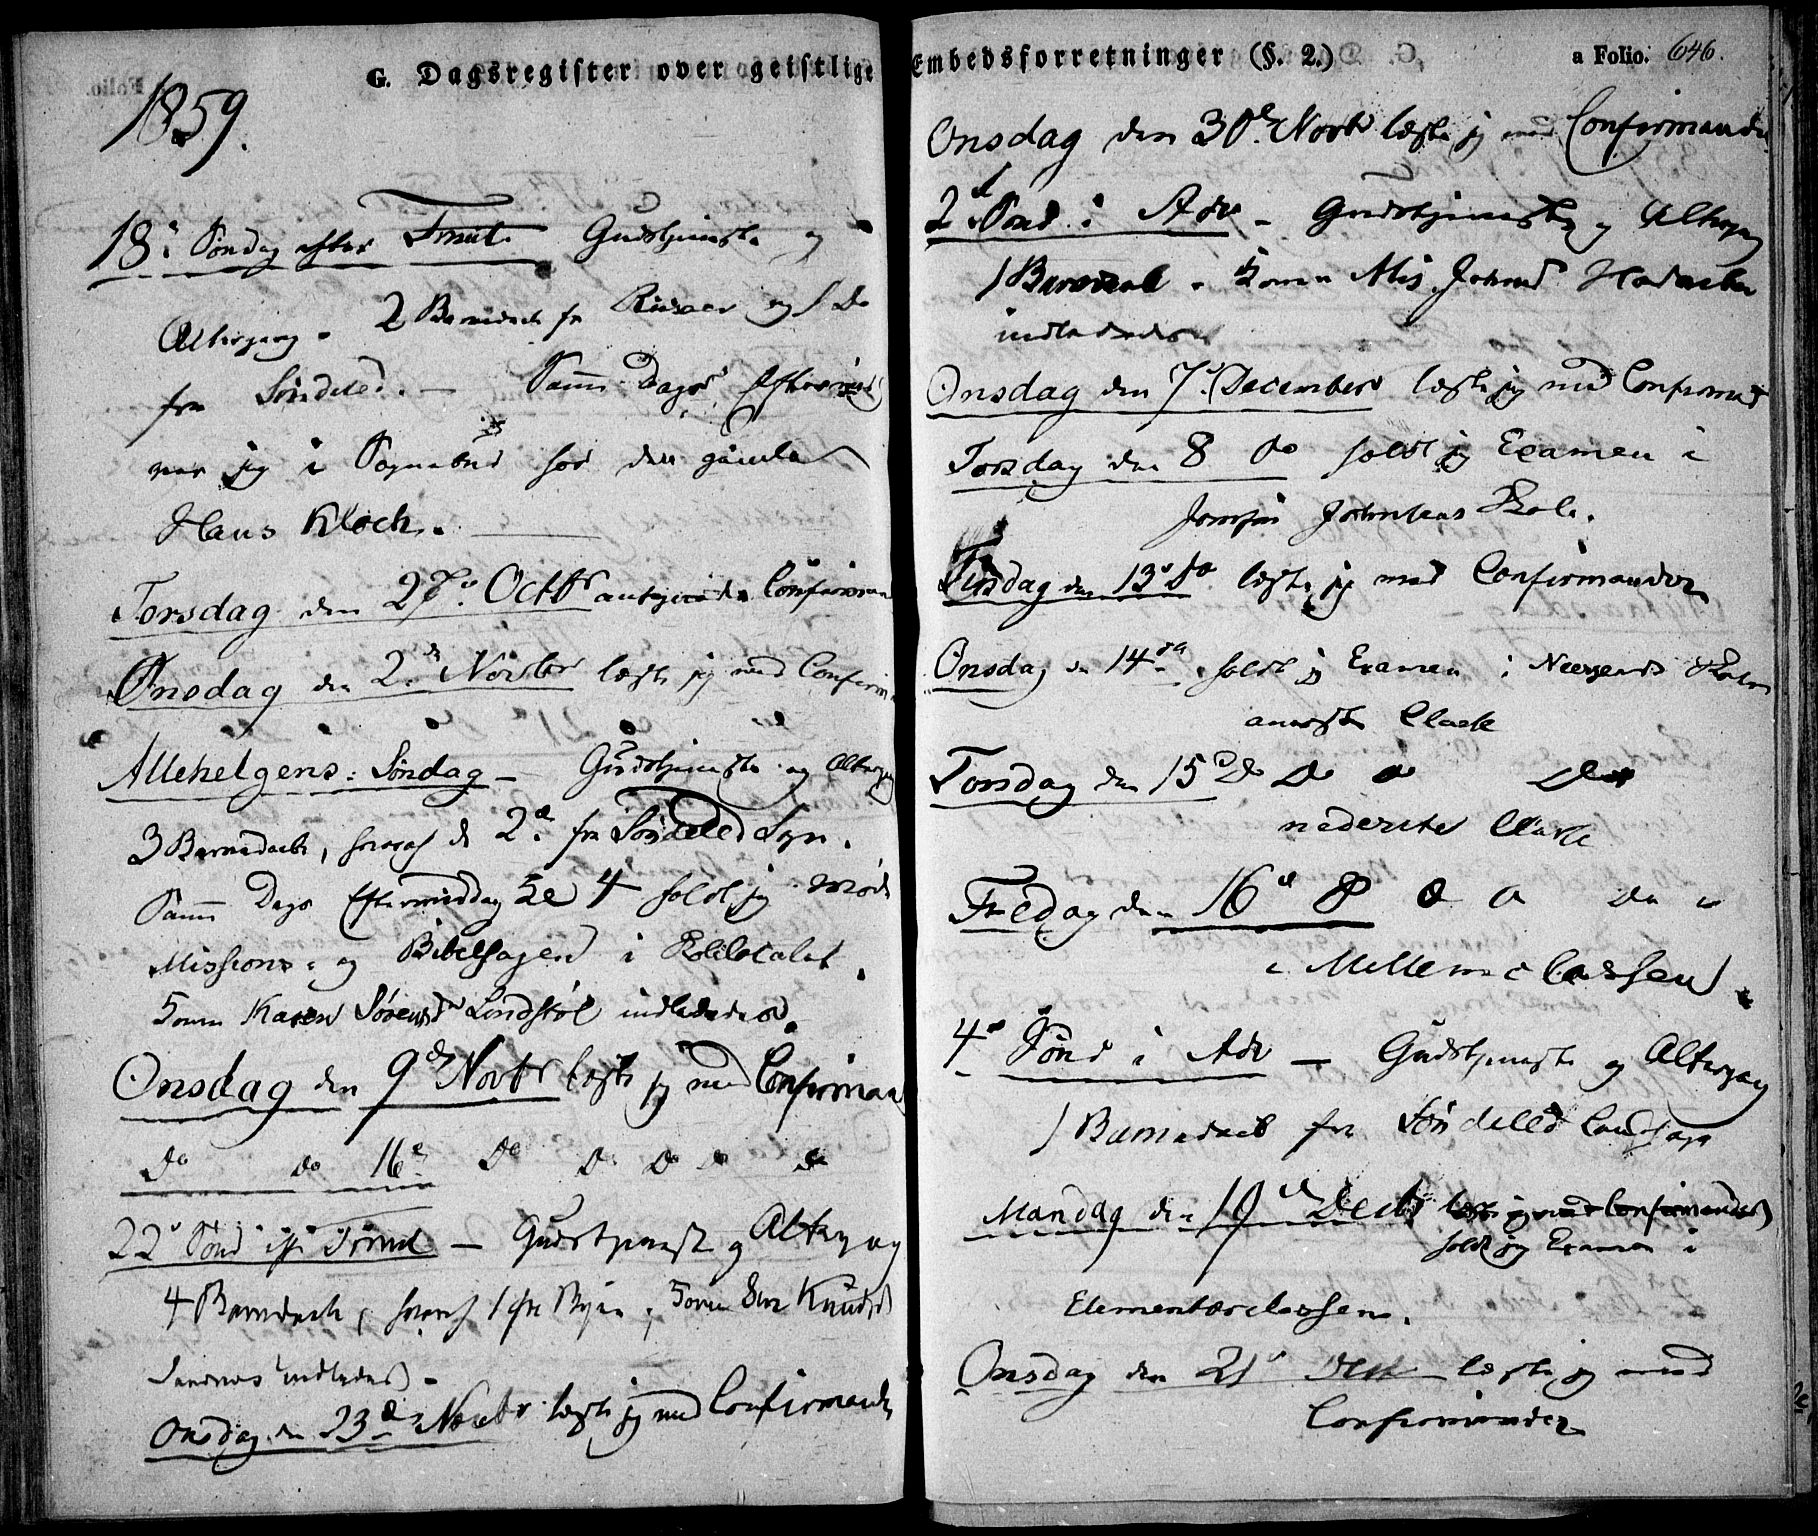 G. Dagsregister over geistlige
1859.
18de Søndag efter Trinit. Gudstjeneste og
Altergang - 2 Barnedaab fra Riisøer og 1 Do
fra Søndeled. — Samme Dags Eftermid
var jeg i Sognebud hos den gamle
Hans Kloch.
Torsdag den 27de Octbr antegnede Confirman
Onsdag den 2den Novbr læste jeg med Confirm
Allehelgens Søndag — Gudstjeneste og Altergang
3 Barnedaab, hvoraf de 2de fra Søndeled Sogn.
Samme Dags Eftermiddag Kl 4 holdt jeg Møde
Missions- og Bibelsagen i Skolelocalet.
Konen Karen Sørensd Lindstøl indlededes.
Onsdag den 9de Novbr læste jeg med Confirman
Do Do 16de Do Do Do Do Do
22de Sønd eft Trinit — Gudstjeneste og Altergang
4 Barnedaab, hvoraf 1 fra Byen, Konen Knudsd
indlededes.
Onsdag den 23de Novbr læste jeg med Confirmande
Embedsforretninger (§. 2.)
a Folio: 646.
Onsdag den 30de Novbr læste jeg med Confirmander
2d Sønd i Adv - Gudstjeneste og Altergang
1 Barnedaab - Konen
indlededes
Onsdag den 7de December læste jeg med Confirmand
Torsdag den 8 Do holdt jeg Examen i
Jomfru Skole.
Tirsdag den 13de Do læste jeg med Confirmander
Onsdag den 14de holdt jeg Examen i Skole
øverste Classe
Torsdag den 15d Do Do Do
nederste Classe
Fredag den 16d
i Mellemclassen
4de Sønd i Adv — Gudstjeneste og Altergang
1 Barnedaab fra Søndeled Landsogn
Mandag den 19de Decbr læste jeg med Confirmander
holdt jeg Examen i
Elementærclassen.
Onsdag den 21de læste jeg med
Confirmander